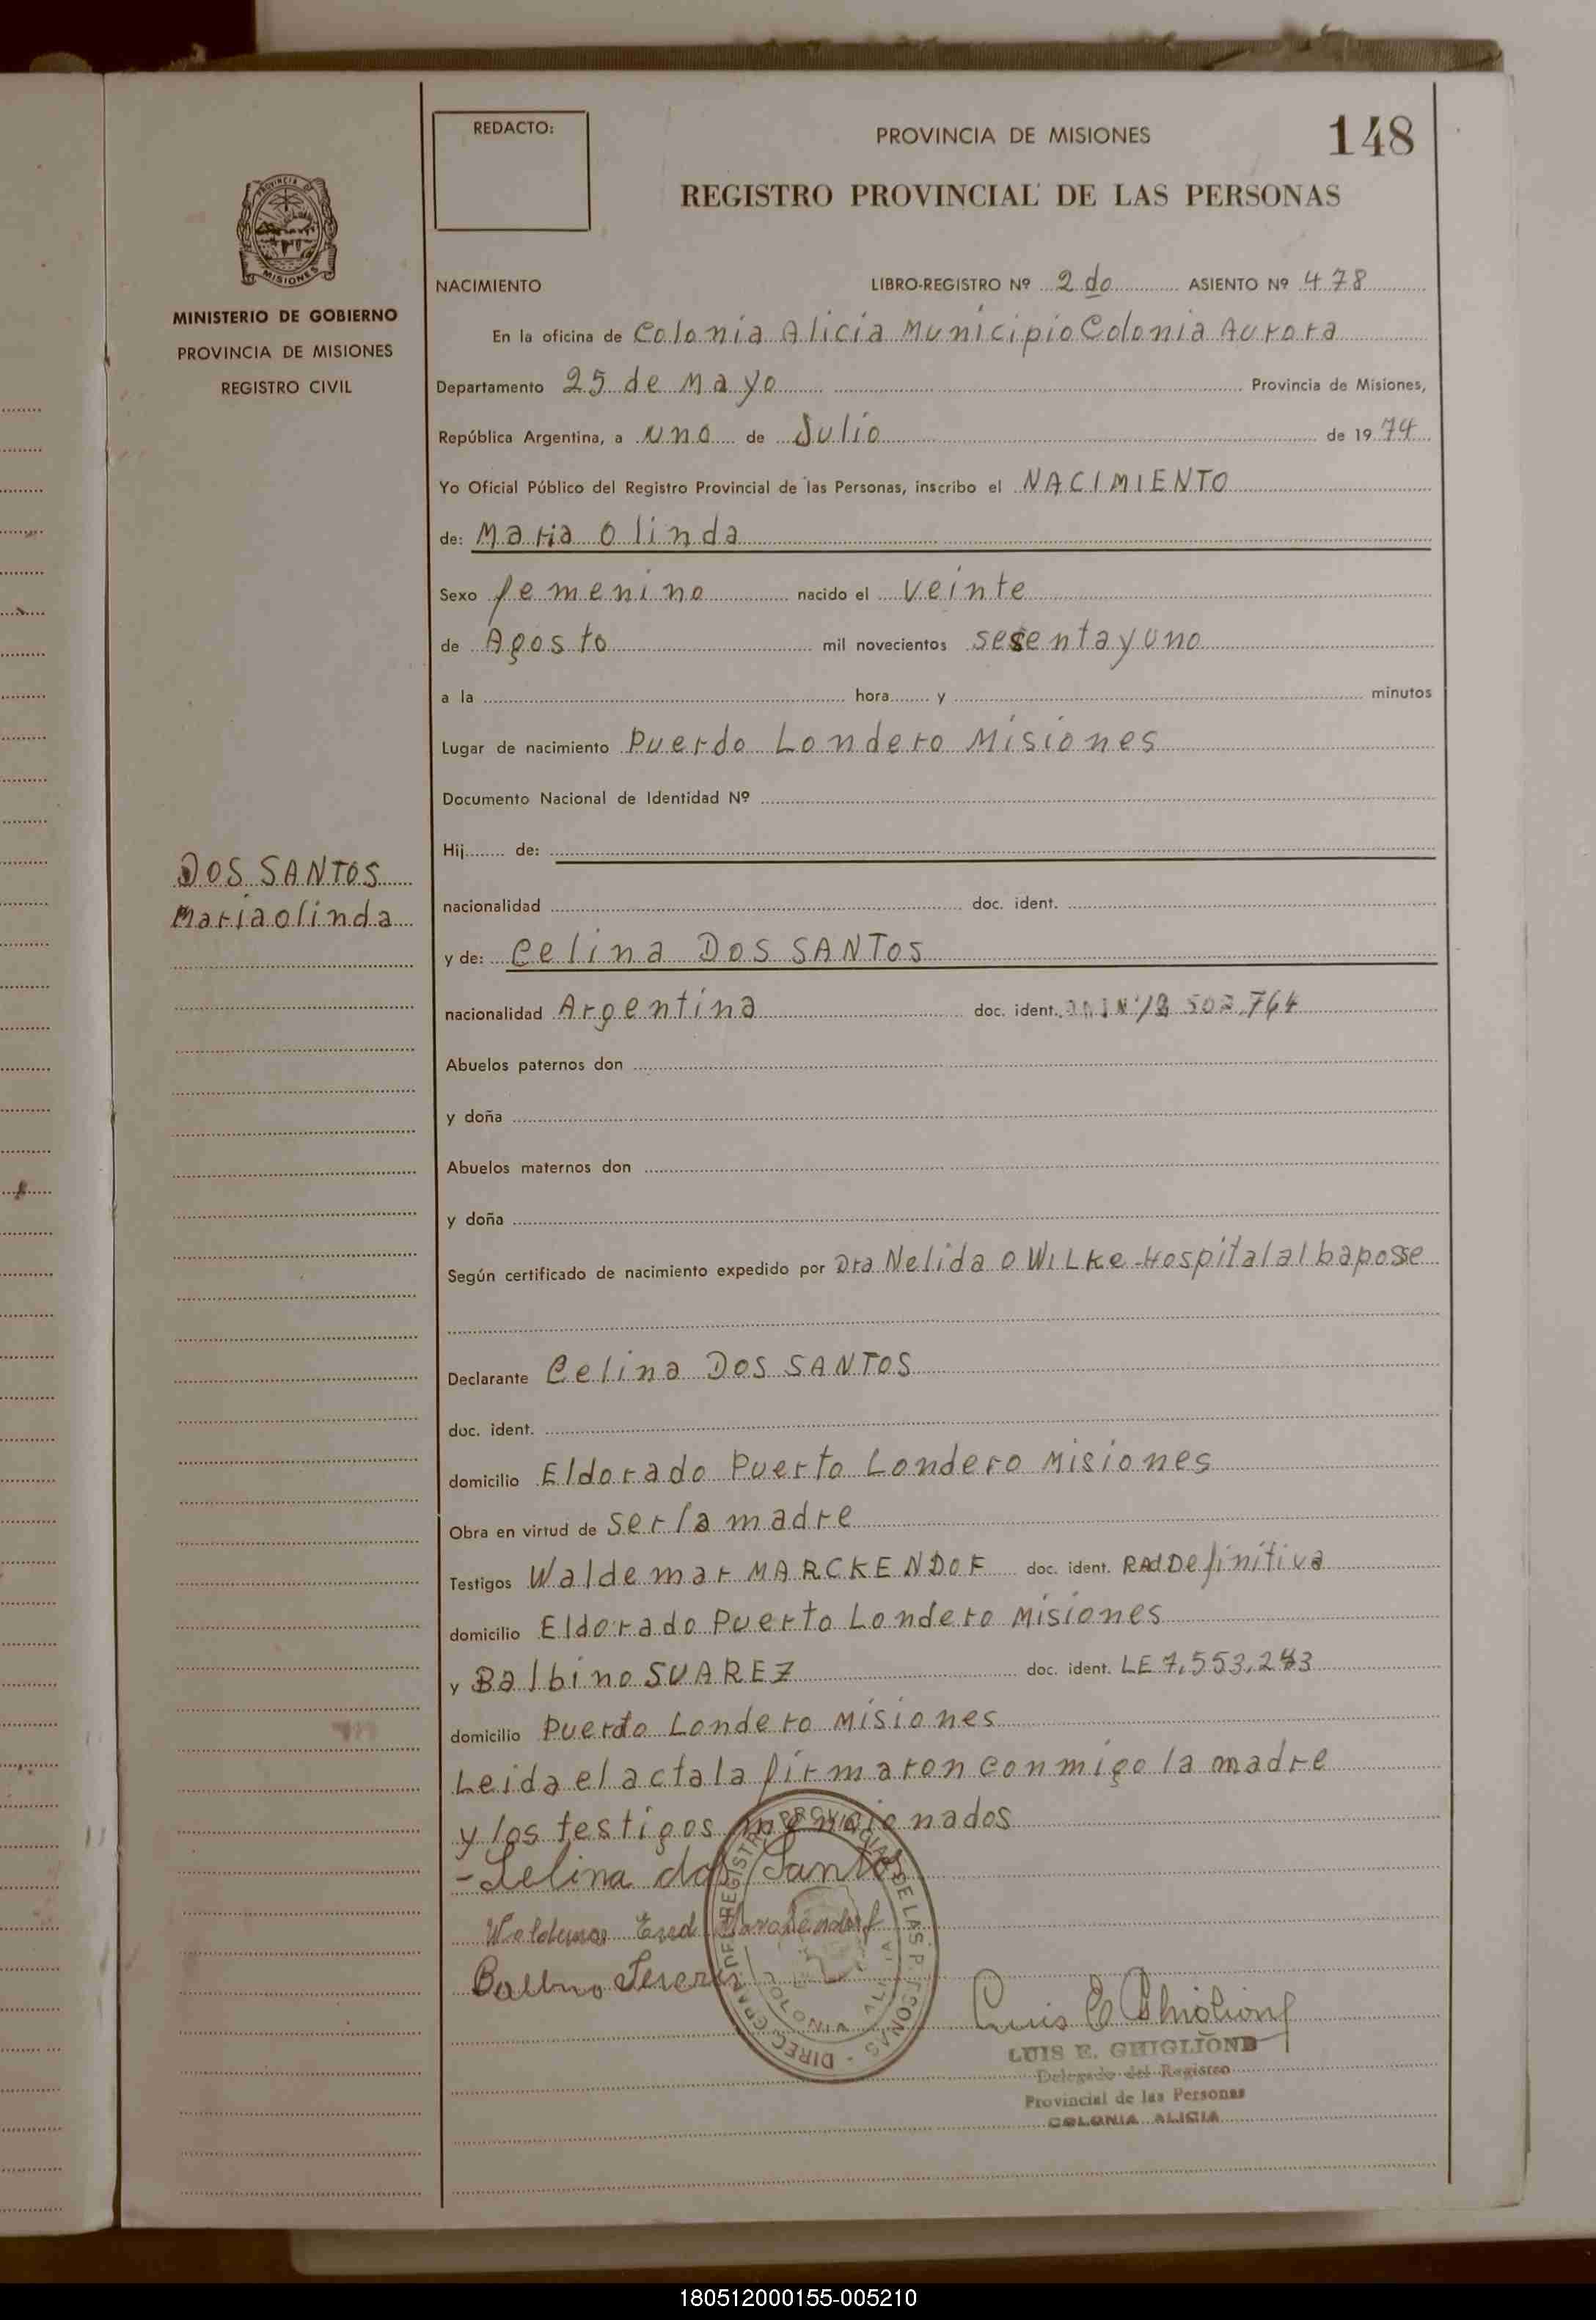 REDACTO:
PROVINCIA DE MISIONES
148
REGISTRO PROVINCIAL DE LAS PERSONAS
PROVINCIA DE
MISIONES
MINISTERIO DE GOBIERNO
PROVINCIA DE MISIONES
REGISTRO CIVIL
NACIMIENTO LIBRO-REGISTRO Nº 2do ASIENTO Nº 478
En la oficina de Colonia Alicia Municipio Colonia Aurora
Departamento 25 de Mayo Provincia de Misiones,
República Argentina, a uno de Julio de 1974
Yo Oficial Público del Registro Provincial de las Personas, inscribo el NACIMIENTO
de: Maria Olinda
Sexo femenino nacido el veinte
de Agosto mil novecientos sesentayuno
a la hora y minutos
Lugar de nacimiento Puerdo Londero Misiones
Documento Nacional de Identidad Nº
Hij de:
DOS SANTOS
Maria olinda
nacionalidad doc. ident.
y de: Celina DOS SANTOS
nacionalidad Argentina doc. ident. 502.764
Abuelos paternos don
y doña
Abuelos maternos don
y doña
Según certificado de nacimiento expedido por Dra Nelida O WILKe-Hospital albaposse
Declarante Celina DOS SANTOS
doc. ident.
domicilio Eldorado Puerto Londero Misiones
Obra en virtud de ser la madre
Testigos Waldemar MARCKENDOF doc. ident. RAdDefinitiva
domicilio Eldorado Puerto Londero Misiones
y Balbino SUAREZ doc. ident. LE 7.553.243
domicilio Puerdo Londero Misiones
Leida el acta la firmaron conmigo la madre
y los testigos mencionados
-Selina dos Santos
Luis E Ghiglione
LUIS E. GHIGLIONE
Delegado del Registro
Provincial de las Personas
COLONIA ALICIA
180512000155-005210